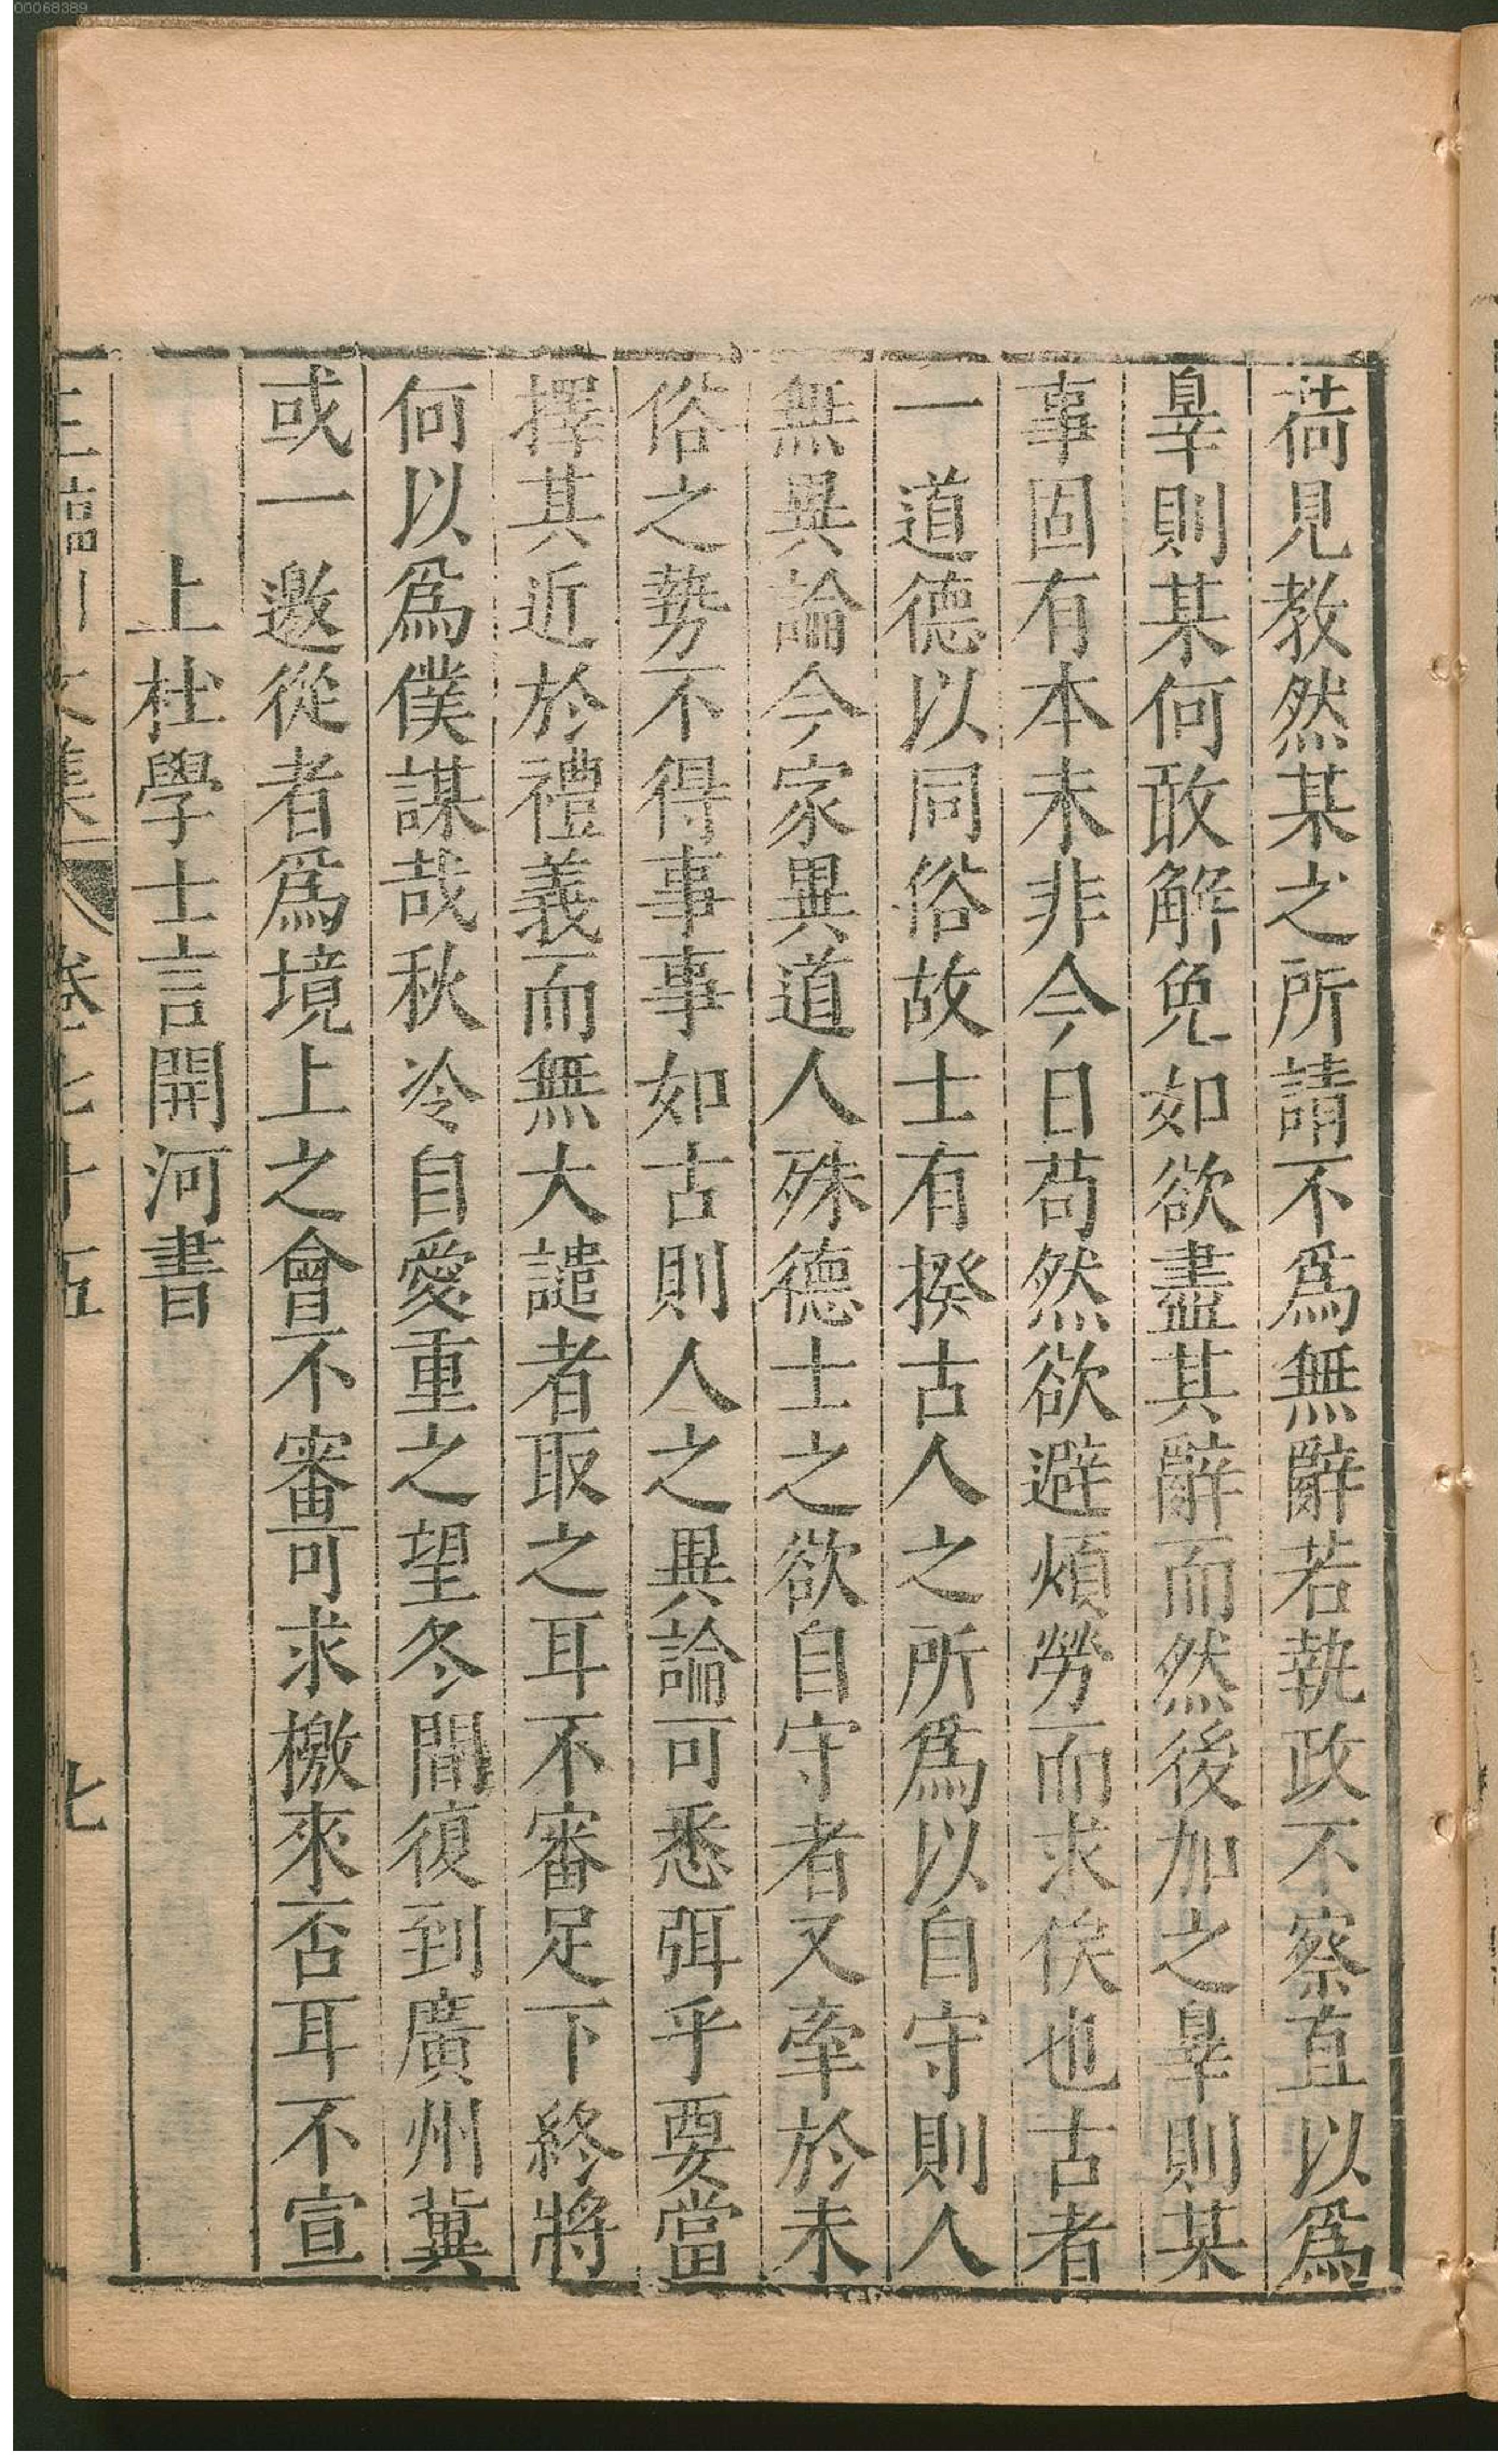 荷見教然某之所請不爲無辭若執政不察直以爲
辠則某何敢解免如欲盡其辭而然後加之辠則某
事固有本末非今日苟然欲避煩勞而求俟也古者
一道德以同俗故士有揆古人之所爲以自守則人
無異論今家異道人殊德士之欲自守者又牽於末
俗之勢不得事事如古則人之異論可悉弭乎要當
擇其近於禮義而無大譴者取之耳不審足下終將
何以爲僕謀哉秋冷自愛重之望冬間復到廣州冀
或一邀從者爲境上之會不審可求檄來否耳不宣
上杜學士言開河書
文集 卷七十五 七
00068389